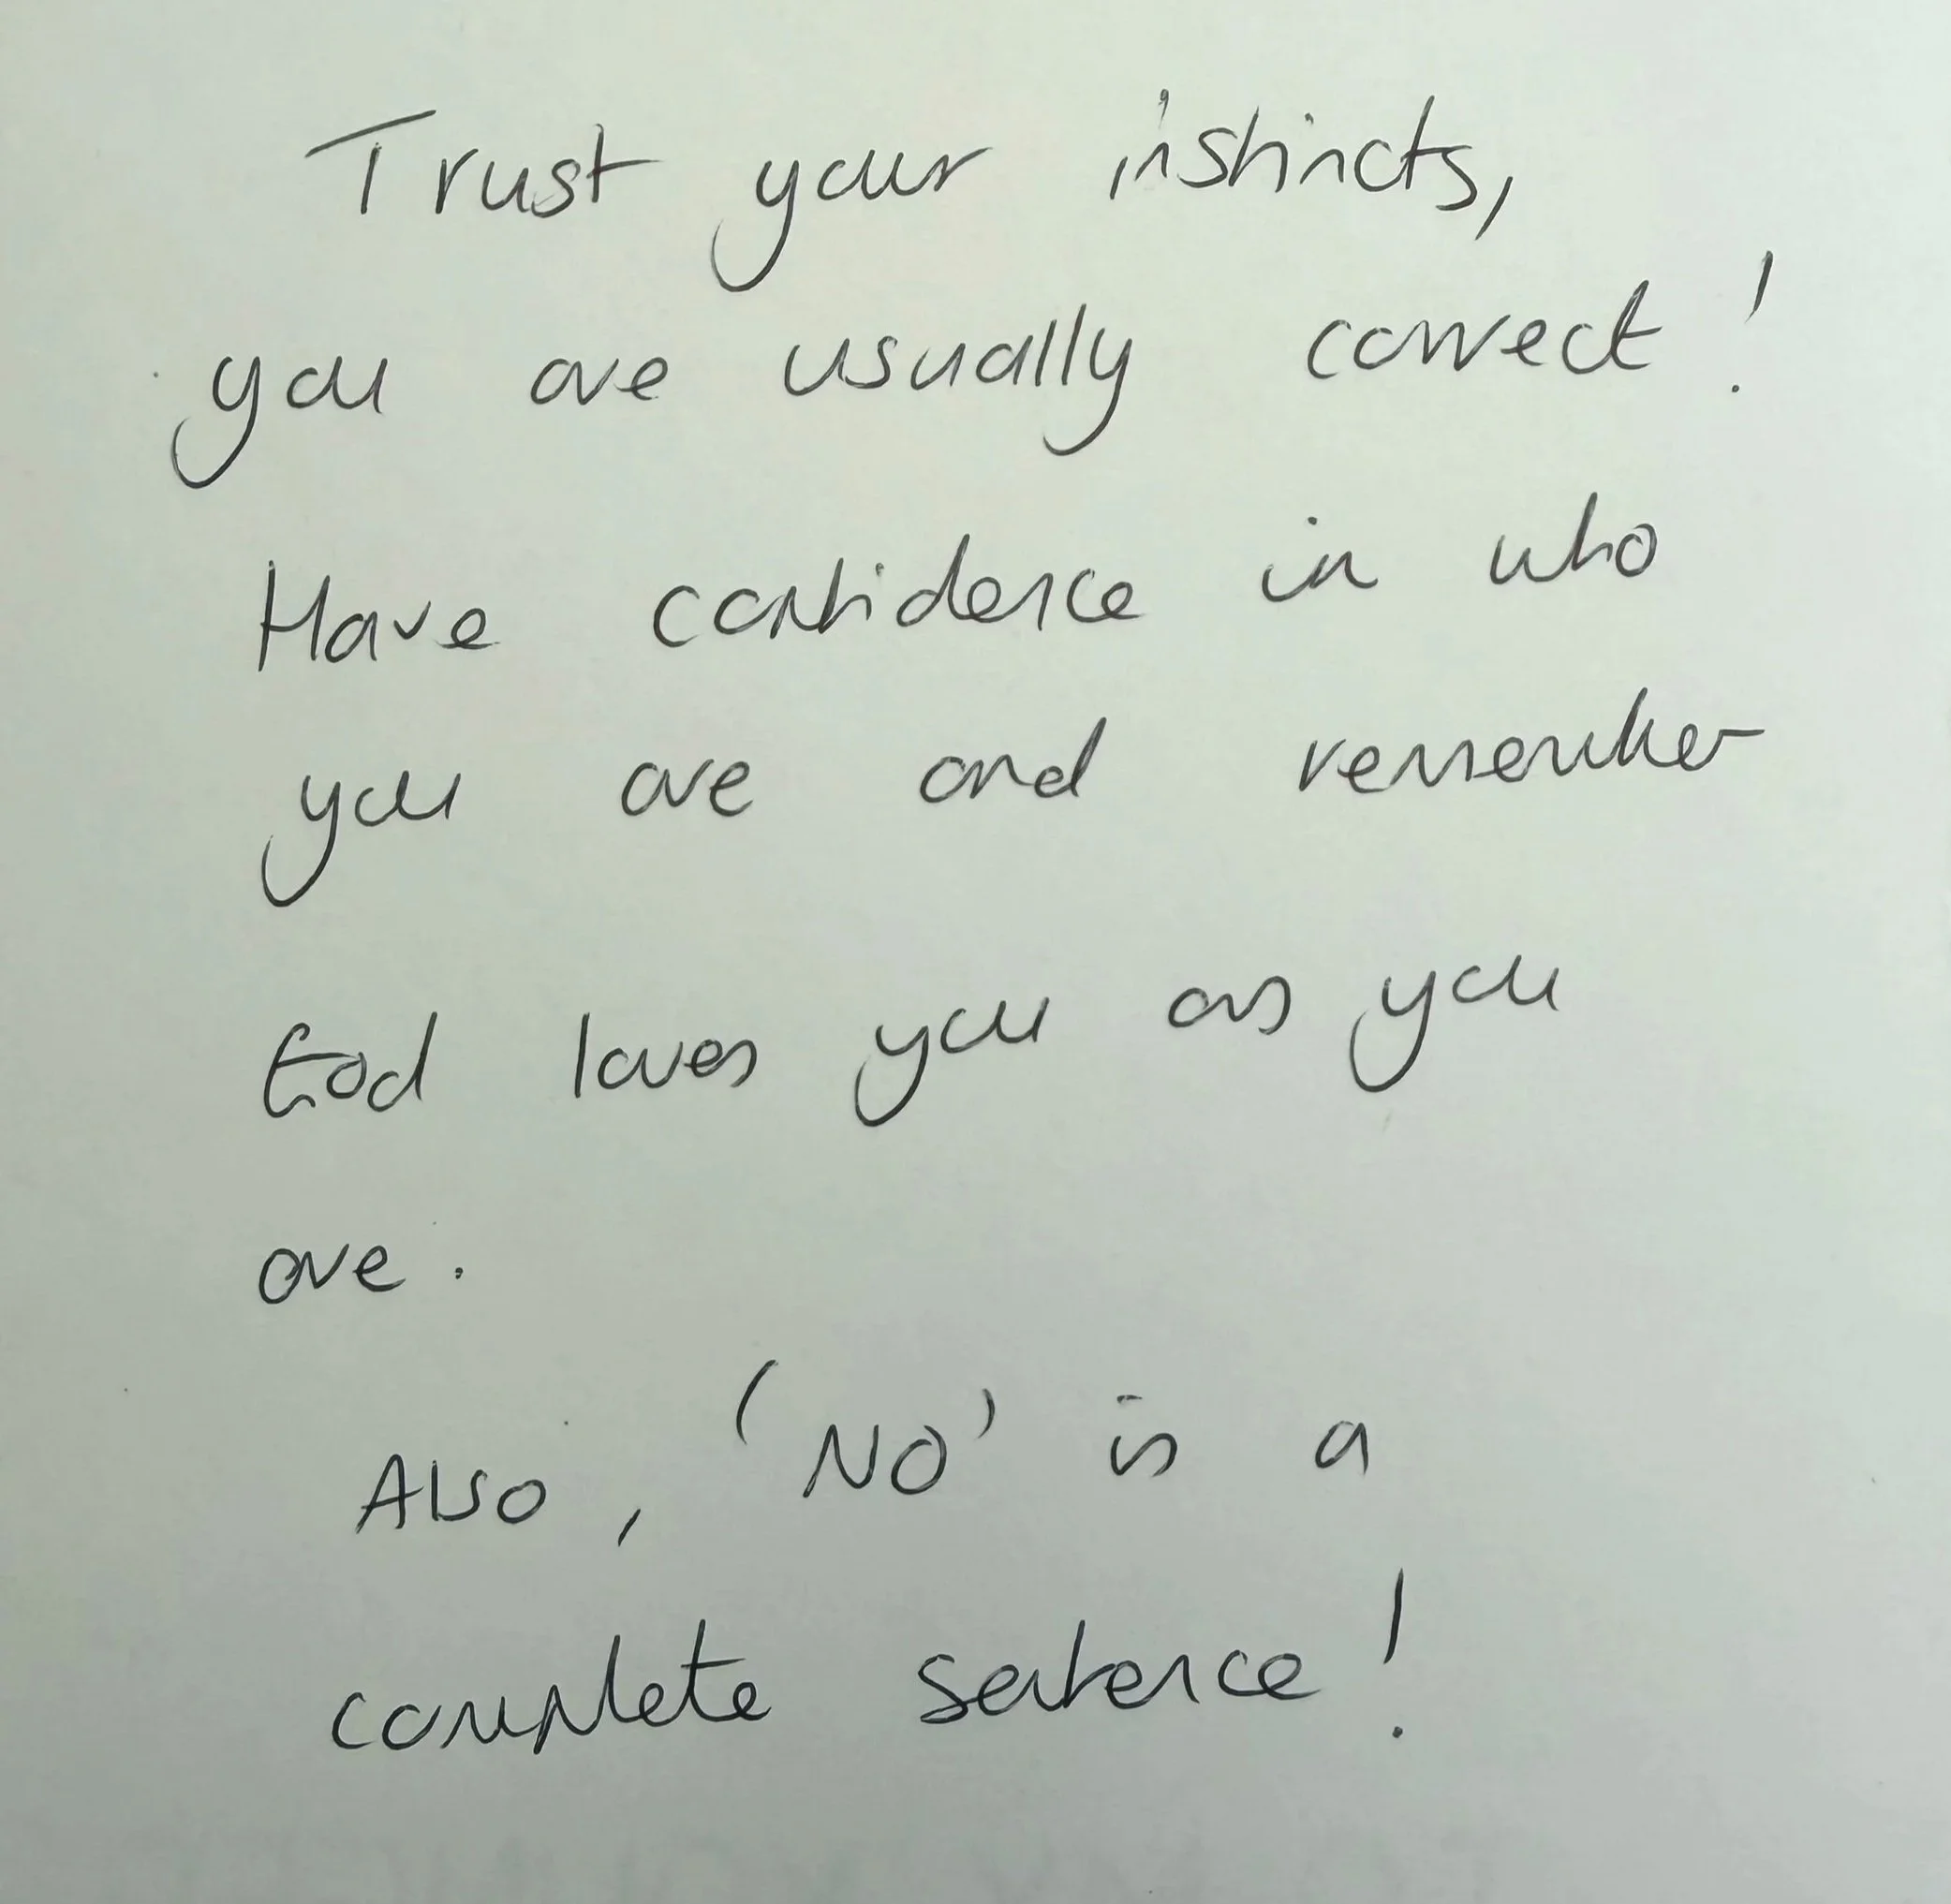 Trust your instincts,
you are usually correct!
Have confidence in who
you are and remember
God loves you as you
are.
Also, 'NO' is a
complete sentence!